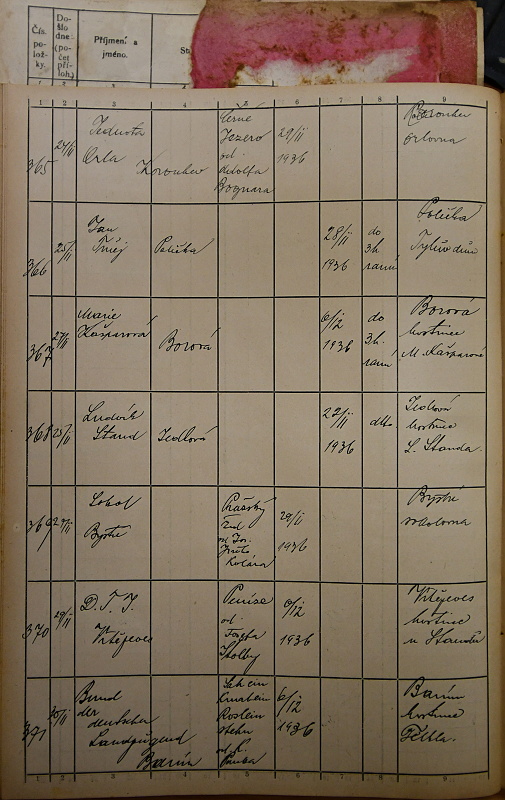 Čís.
po-
lož-
ky.
Do-
šlo
dne:
(po-
čet
pří-
loh.)
Příjmení a
jméno.
1 2 3 4 5 6 7 8 9
365
Jednota
Orla
Korouhev
Černé
Jezero
od
Adolfa
Bognara
29/II
1936
Korouhev
Orlovna
366
25/II
Jan
Polička
28/II
1936
do
3h
ranní
Polička
Tylův dům
367
27/II
Marie
Kašparová
Borová
6/12
1936
do
3h.
ranní
Borová
hostinec
M. Kašparové
368
25/II
Ludvík
Stand
Jedlová
22/II
1936
dtto.
Jedlová
hostinec
L. Standa.
369
Sokol
Bystré
Pražský
žid
od Jos.
Kolára
29/II
1936
Bystré
sokolovna
370
29/II
D. T. J.
Vítějeves
Peníze
od
Josefa
Štolby
6/12
1936
Vítějeves
hostinec
u Standů
371
30/II
Bund
der
deutschen
Landjugend
Banín
Sah ein
Knab ein
Röslein
stehn
od
6/12
1936
Banín
hostinec
1 2 3 4 5 6 7 8 9